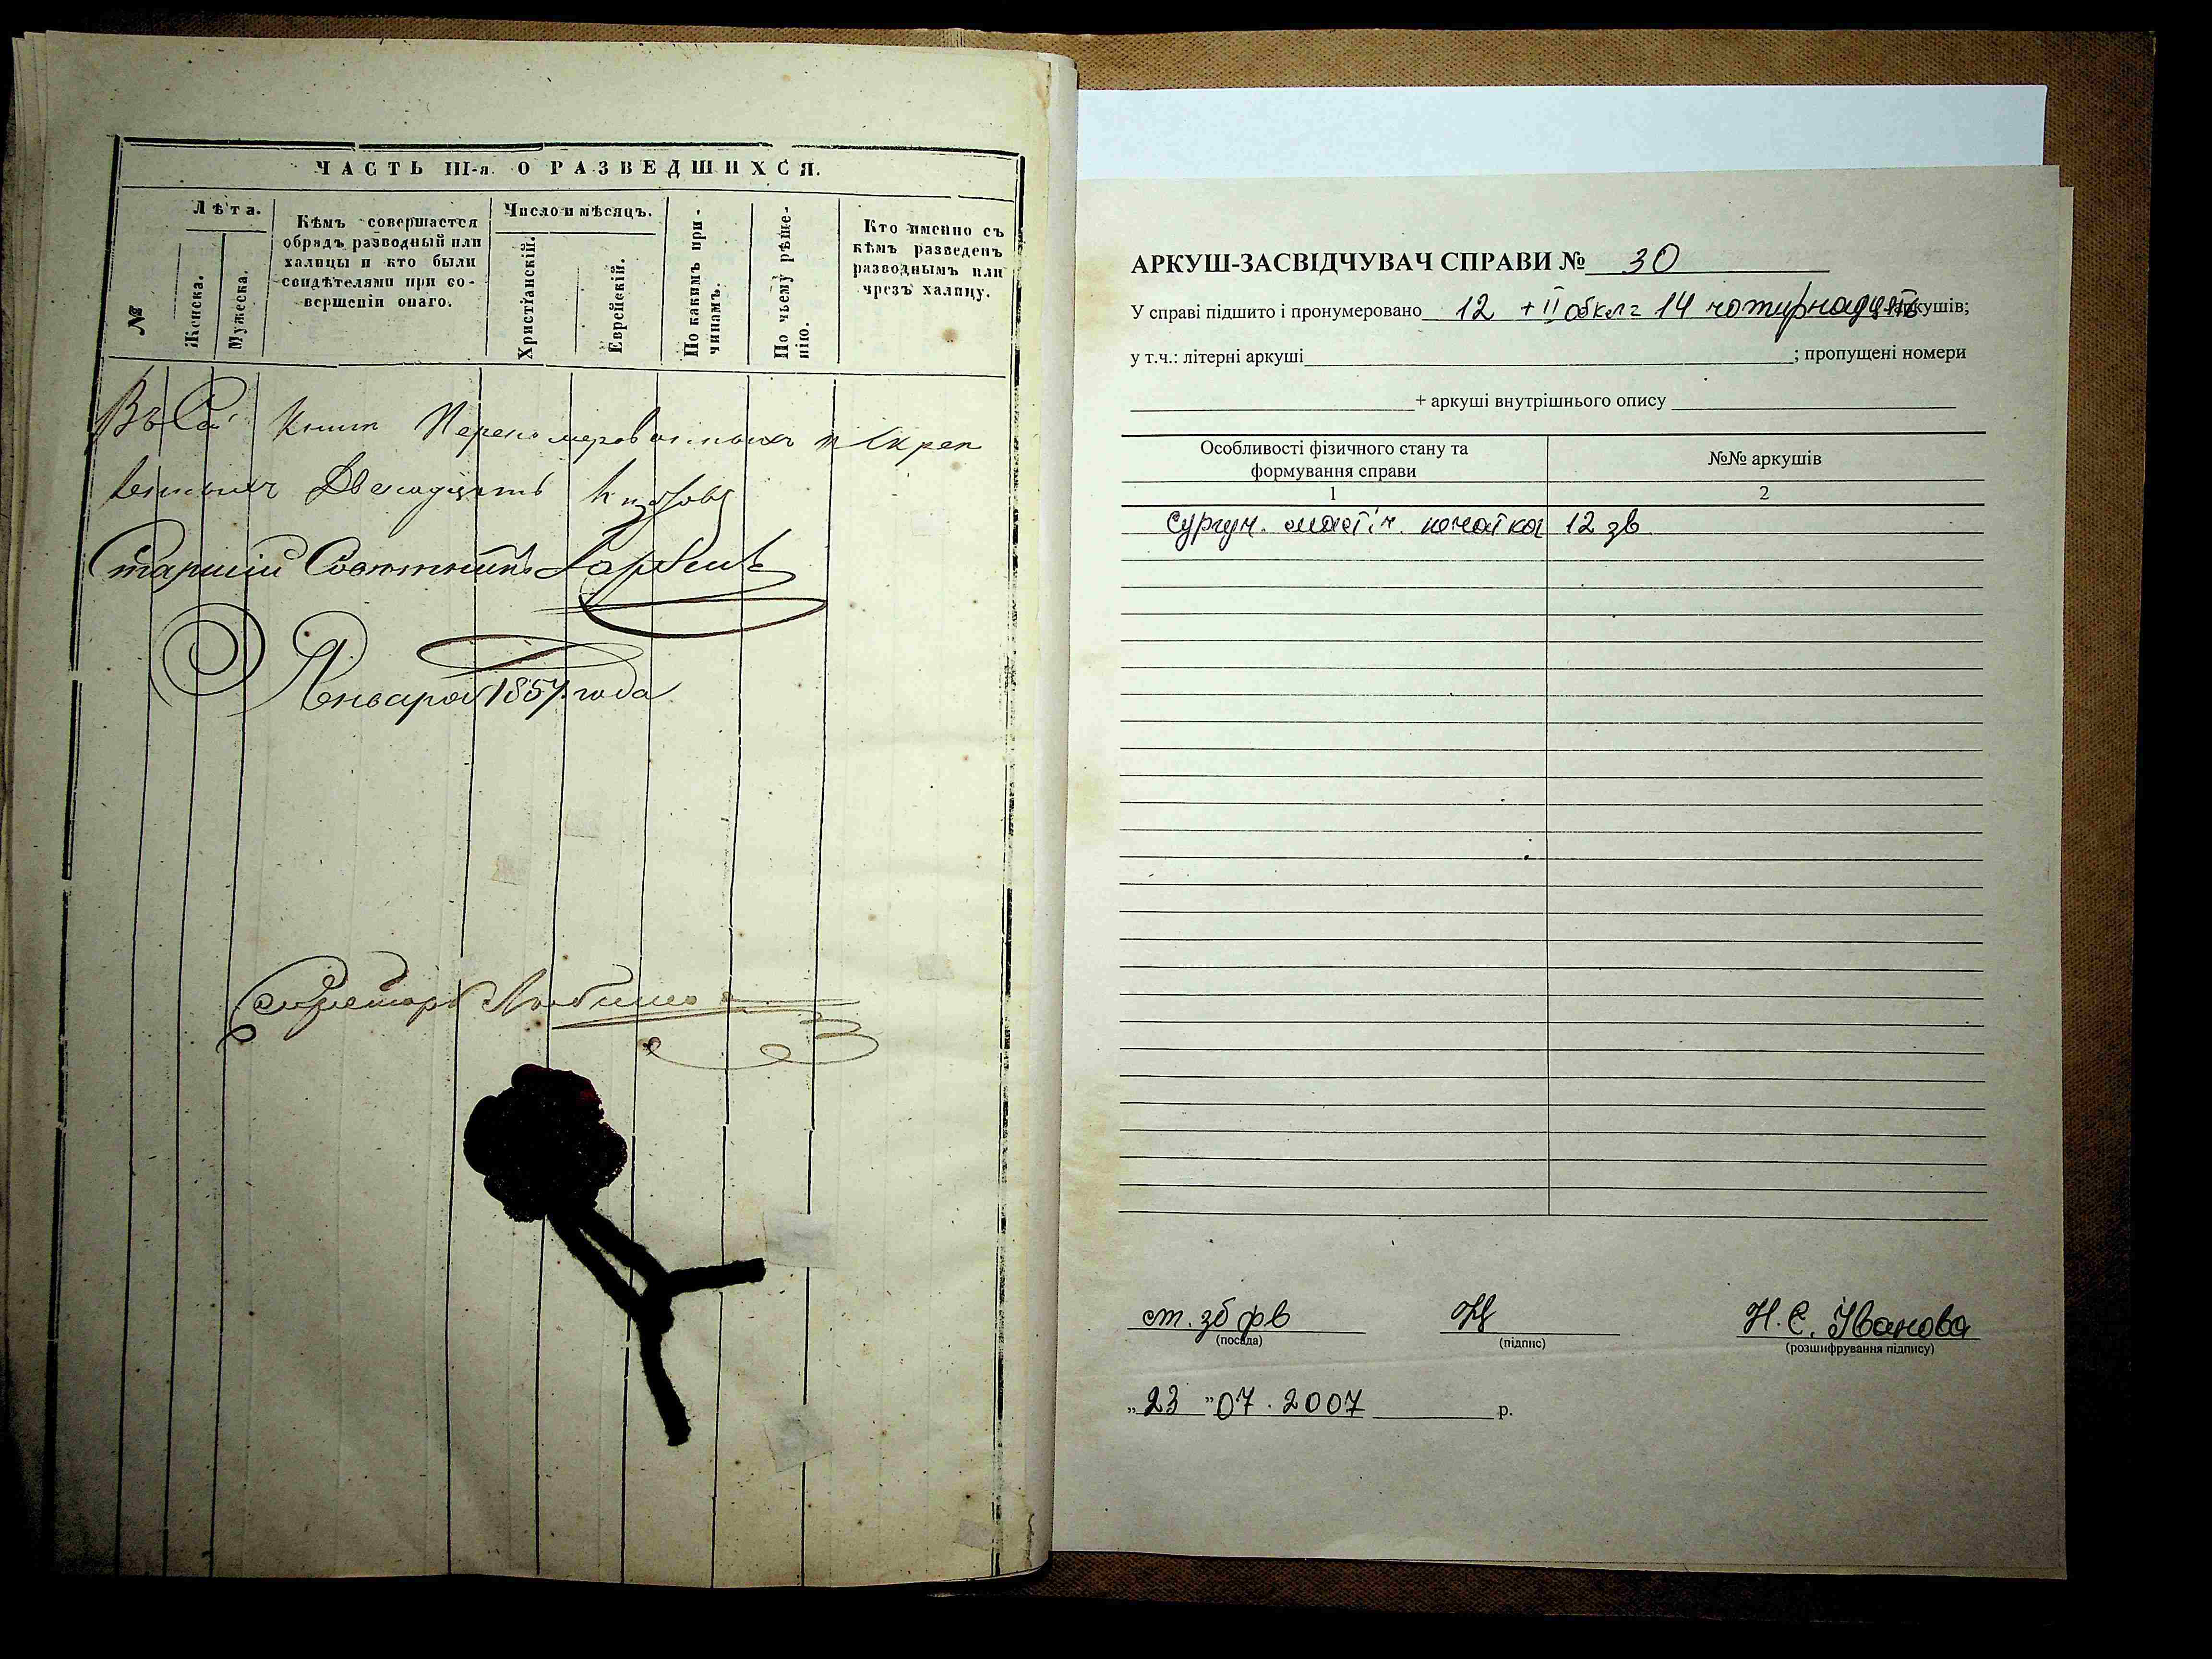 ЧАСТЬ III-я. О РАЗВЕДШИХСЯ.
№
Лѣта.
Женска.
Мужеска.
Кѣмъ совершается
обрядъ разводный или
халицы и кто были
свидѣтелями при со-
вершеніи онаго.
Число и мѣсяцъ.
Христіанскій.
Еврейскій.
По какимъ при-
чинамъ.
По чьему рѣше-
нію.
Кто именно съ
кѣмъ разведенъ
разводнымъ или
чрезъ халицу.
Въ Сей Книгѣ Перено мерованныхъ и Скреп
ленныхъ Двенадцать
Старшій Совѣтникъ
Января 1857 года
Секретарь
АРКУШ-ЗАСВІДЧУВАЧ СПРАВИ № 30
У справі підшито і пронумеровано 12 + II обкл = 14 чотирнадцять аркушів;
у т.ч.: літерні аркуші ; пропущені номери
+ аркуші внутрішнього опису
Особливості фізичного стану та
формування справи
№№ аркушів
1
2
Сургуч. мастич. печатка 12 зв
ст. зб фв
(посада)
(підпис)
Н. Є. Іванова
(розшифрування підпису)
„ 23 " 07 . 2007 р.